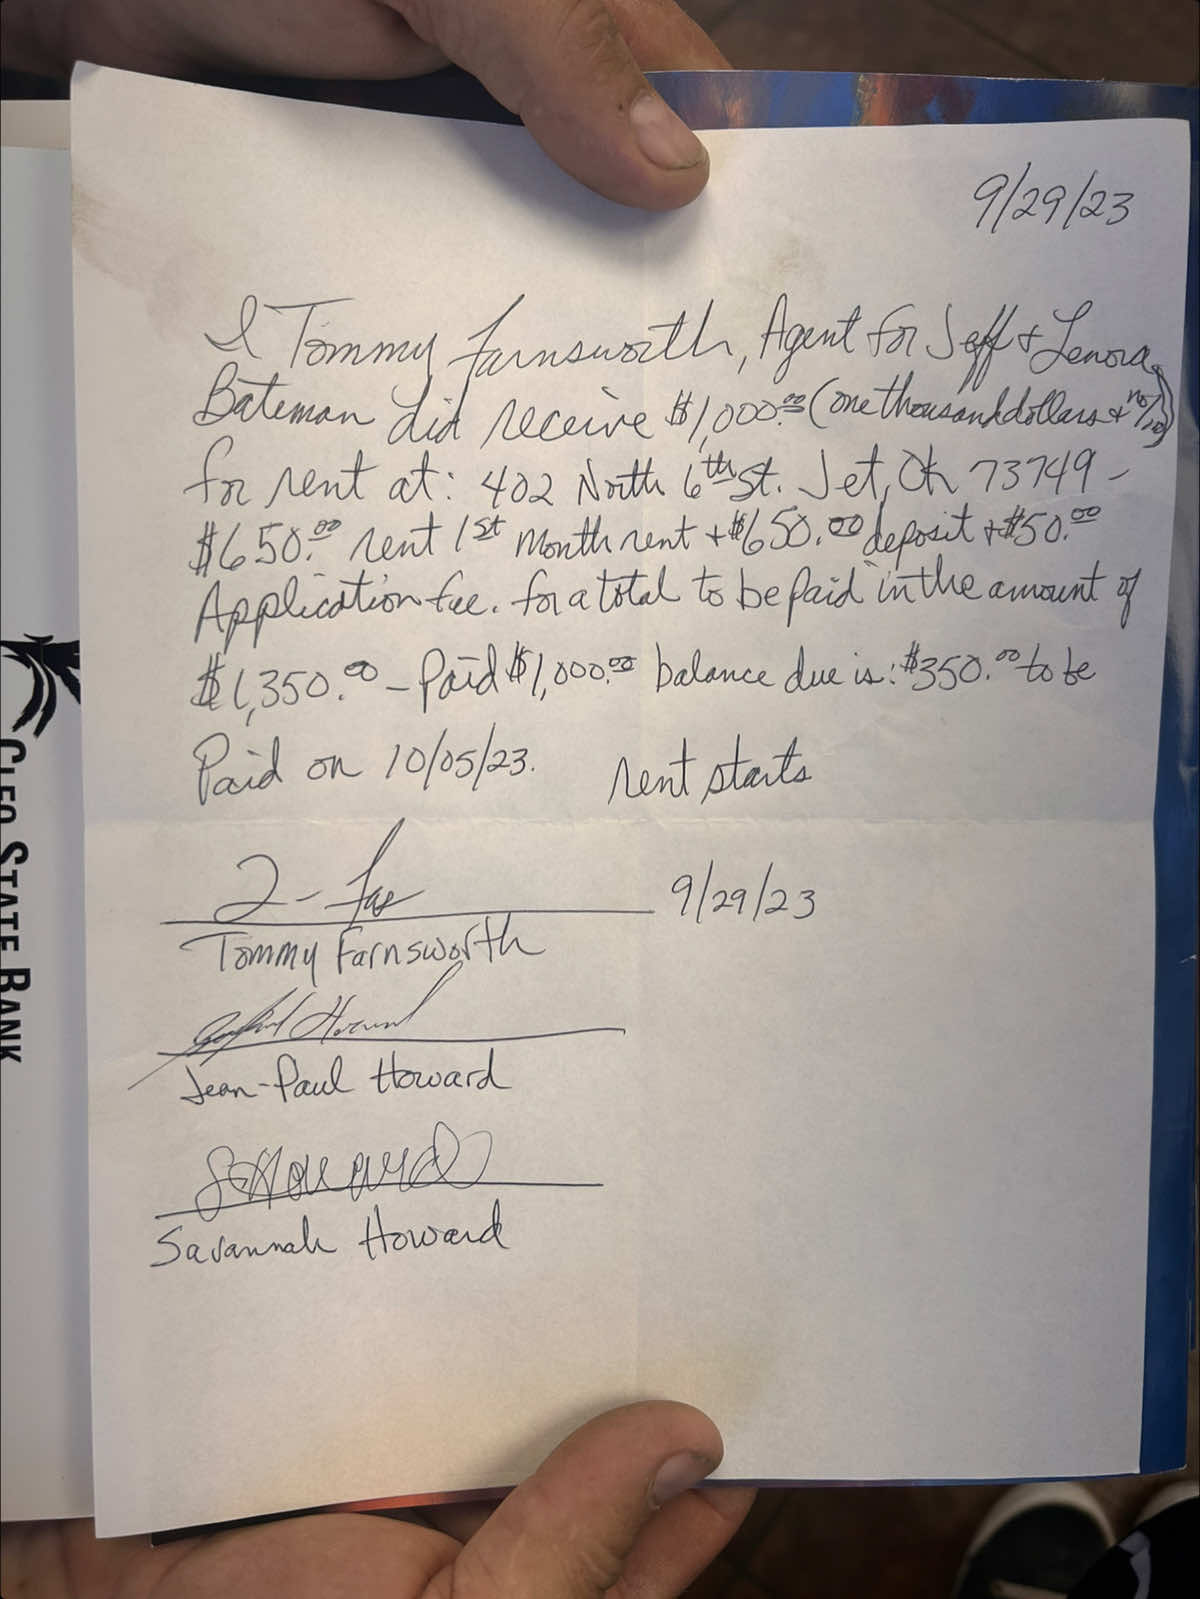 9/29/23
I Tommy Farnsworth, Agent for Jeff & Lenora
Bateman did receive $1,000.00 (one thousand dollars & no/100)
for rent at: 402 North 6th St. Jet, Ok 73749 -
$650.00 rent 1st Month rent + $650.00 deposit + $50.00
Application fee. for a total to be paid in the amount of
$1,350.00 - Paid $1,000.00 balance due is: $350.00 to be
Paid on 10/05/23. rent starts
9/29/23
Tommy Farnsworth
Jean-Paul Howard
S Howard
Savannah Howard
CLEO STATE BANK